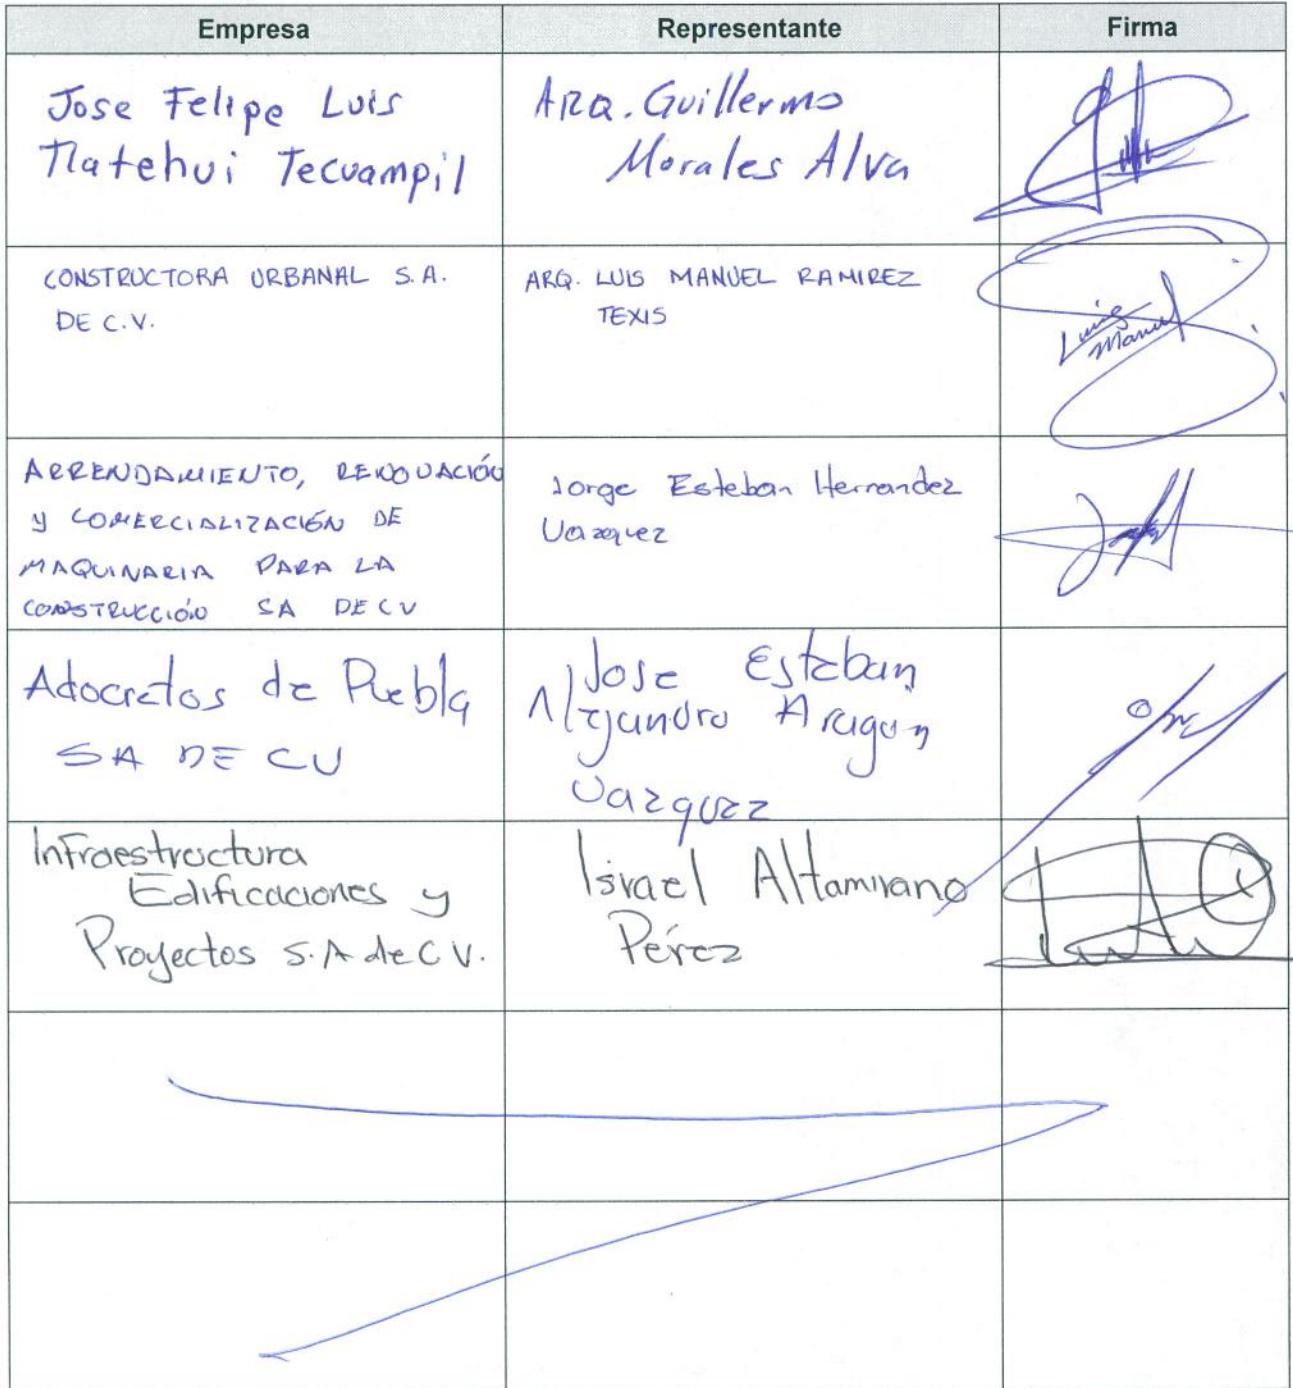 Empresa Representante Firma
Jose Felipe Luis
Tlatehui Tecuampil
Arq. Guillermo
Morales Alva
CONSTRUCTORA URBANAL S.A.
DE C.V.
ARQ. LUIS MANUEL RAMIREZ
TEXIS
Luis
Manuel
ARRENDAMIENTO, RENOVACIÓN
y COMERCIALIZACIÓN DE
MAQUINARIA PARA LA
CONSTRUCCIÓN SA DE CV
Jorge Esteban Hernandez
Vazquez
Adocretos de Puebla
SA DE CV
Jose Esteban
Alejandro Aragon
Vazquez
Infraestructura
Edificaciones y
Proyectos S.A de C V.
Israel Altamirano
Pérez